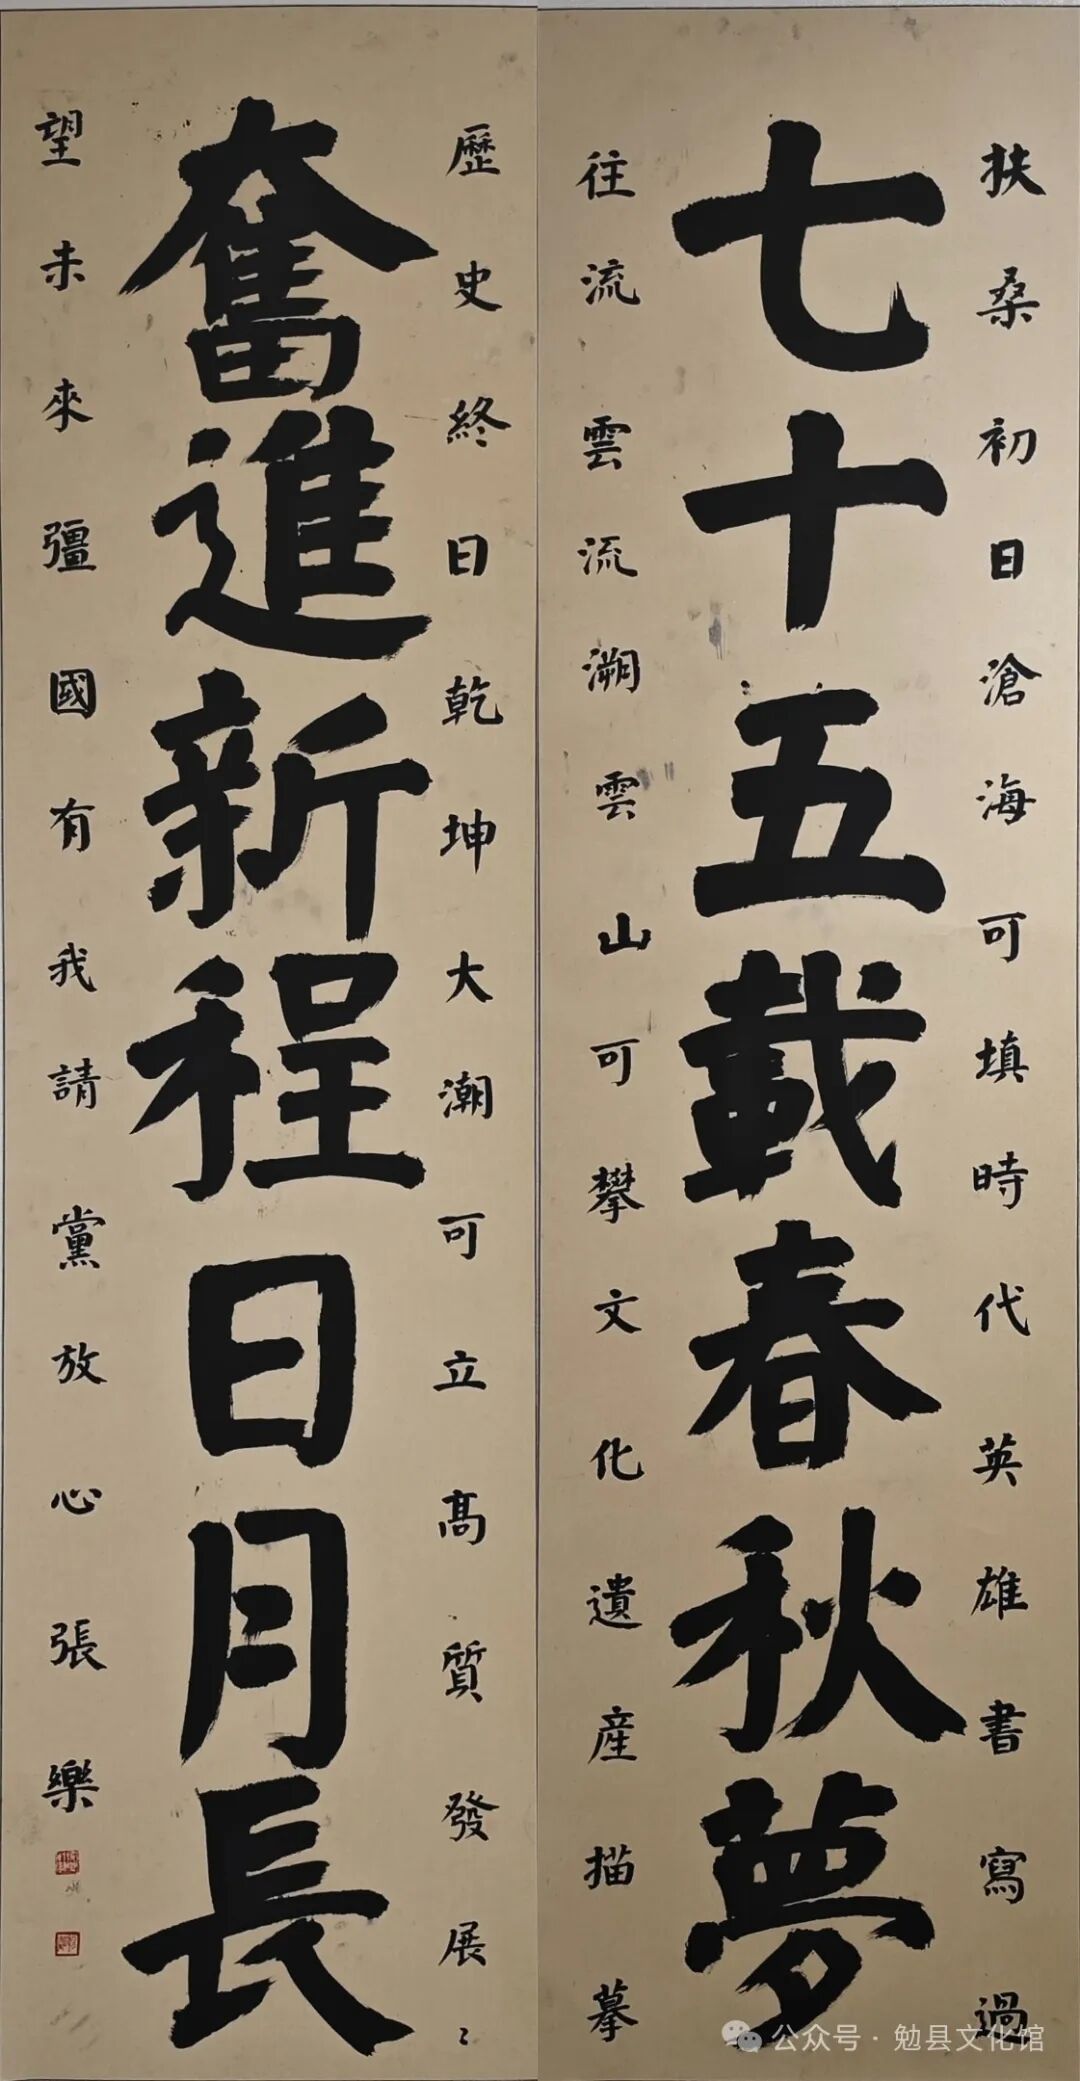 扶桑初日滄海可填時代英雄書寫過
七十五載春秋夢
往流雲流溯雲山可攀文化遺産描摹
歷史終日乾坤大潮可立高質發展〻
奮進新程日月長
望未來彊國有我請黨放心張樂
公众号·勉县文化馆